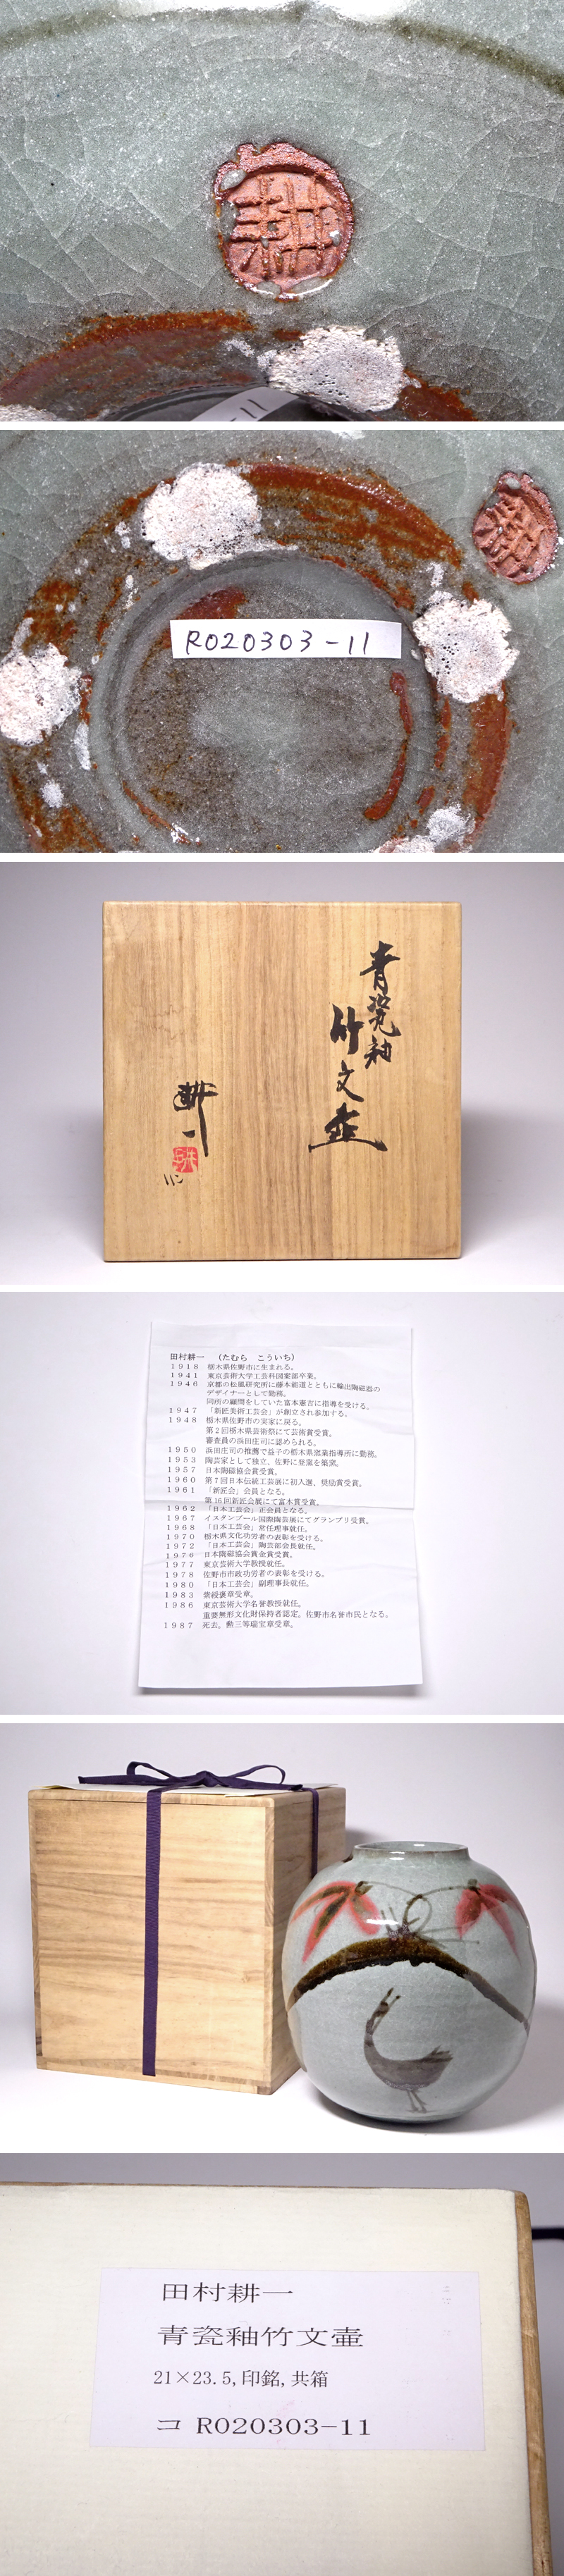 -11
R020303-11
青瓷釉
竹文壺
耕一
田村耕一 （たむら こういち）
１９１８ 栃木県佐野市に生まれる。
１９４１ 東京芸術大学工芸科図案部卒業。
１９４６ 京都の松風研究所に藤本能道とともに輸出陶磁器の
デザイナーとして勤務。
同所の顧問をしていた富本憲吉に指導を受ける。
１９４７ 「新匠美術工芸会」が創立され参加する。
１９４８ 栃木県佐野市の実家に戻る。
第２回栃木県芸術祭にて芸術賞受賞。
審査員の浜田庄司に認められる。
１９５０ 浜田庄司の推薦で益子の栃木県窯業指導所に勤務。
１９５３ 陶芸家として独立、佐野に登窯を築窯。
１９５７ 日本陶磁協会賞受賞。
１９６０ 第７回日本伝統工芸展に初入選、奨励賞受賞。
１９６１ 「新匠会」会員となる。
第16回新匠会展にて富本賞受賞。
１９６２ 「日本工芸会」正会員となる。
１９６７ イスタンブール国際陶芸展にてグランプリ受賞。
１９６８ 「日本工芸会」常任理事就任。
１９７０ 栃木県文化功労者の表彰を受ける。
１９７２ 「日本工芸会」陶芸部会長就任。
１９７６ 日本陶磁協会賞金賞受賞。
１９７７ 東京芸術大学教授就任。
１９７８ 佐野市市政功労者の表彰を受ける。
１９８０ 「日本工芸会」副理事長就任。
１９８３ 紫綬褒章受章。
１９８６ 東京芸術大学名誉教授就任。
重要無形文化財保持者認定。佐野市名誉市民となる。
１９８７ 死去。勲三等瑞宝章受章。
田村耕一
青瓷釉竹文壷
21×23.5,印銘,共箱
コ R020303-11